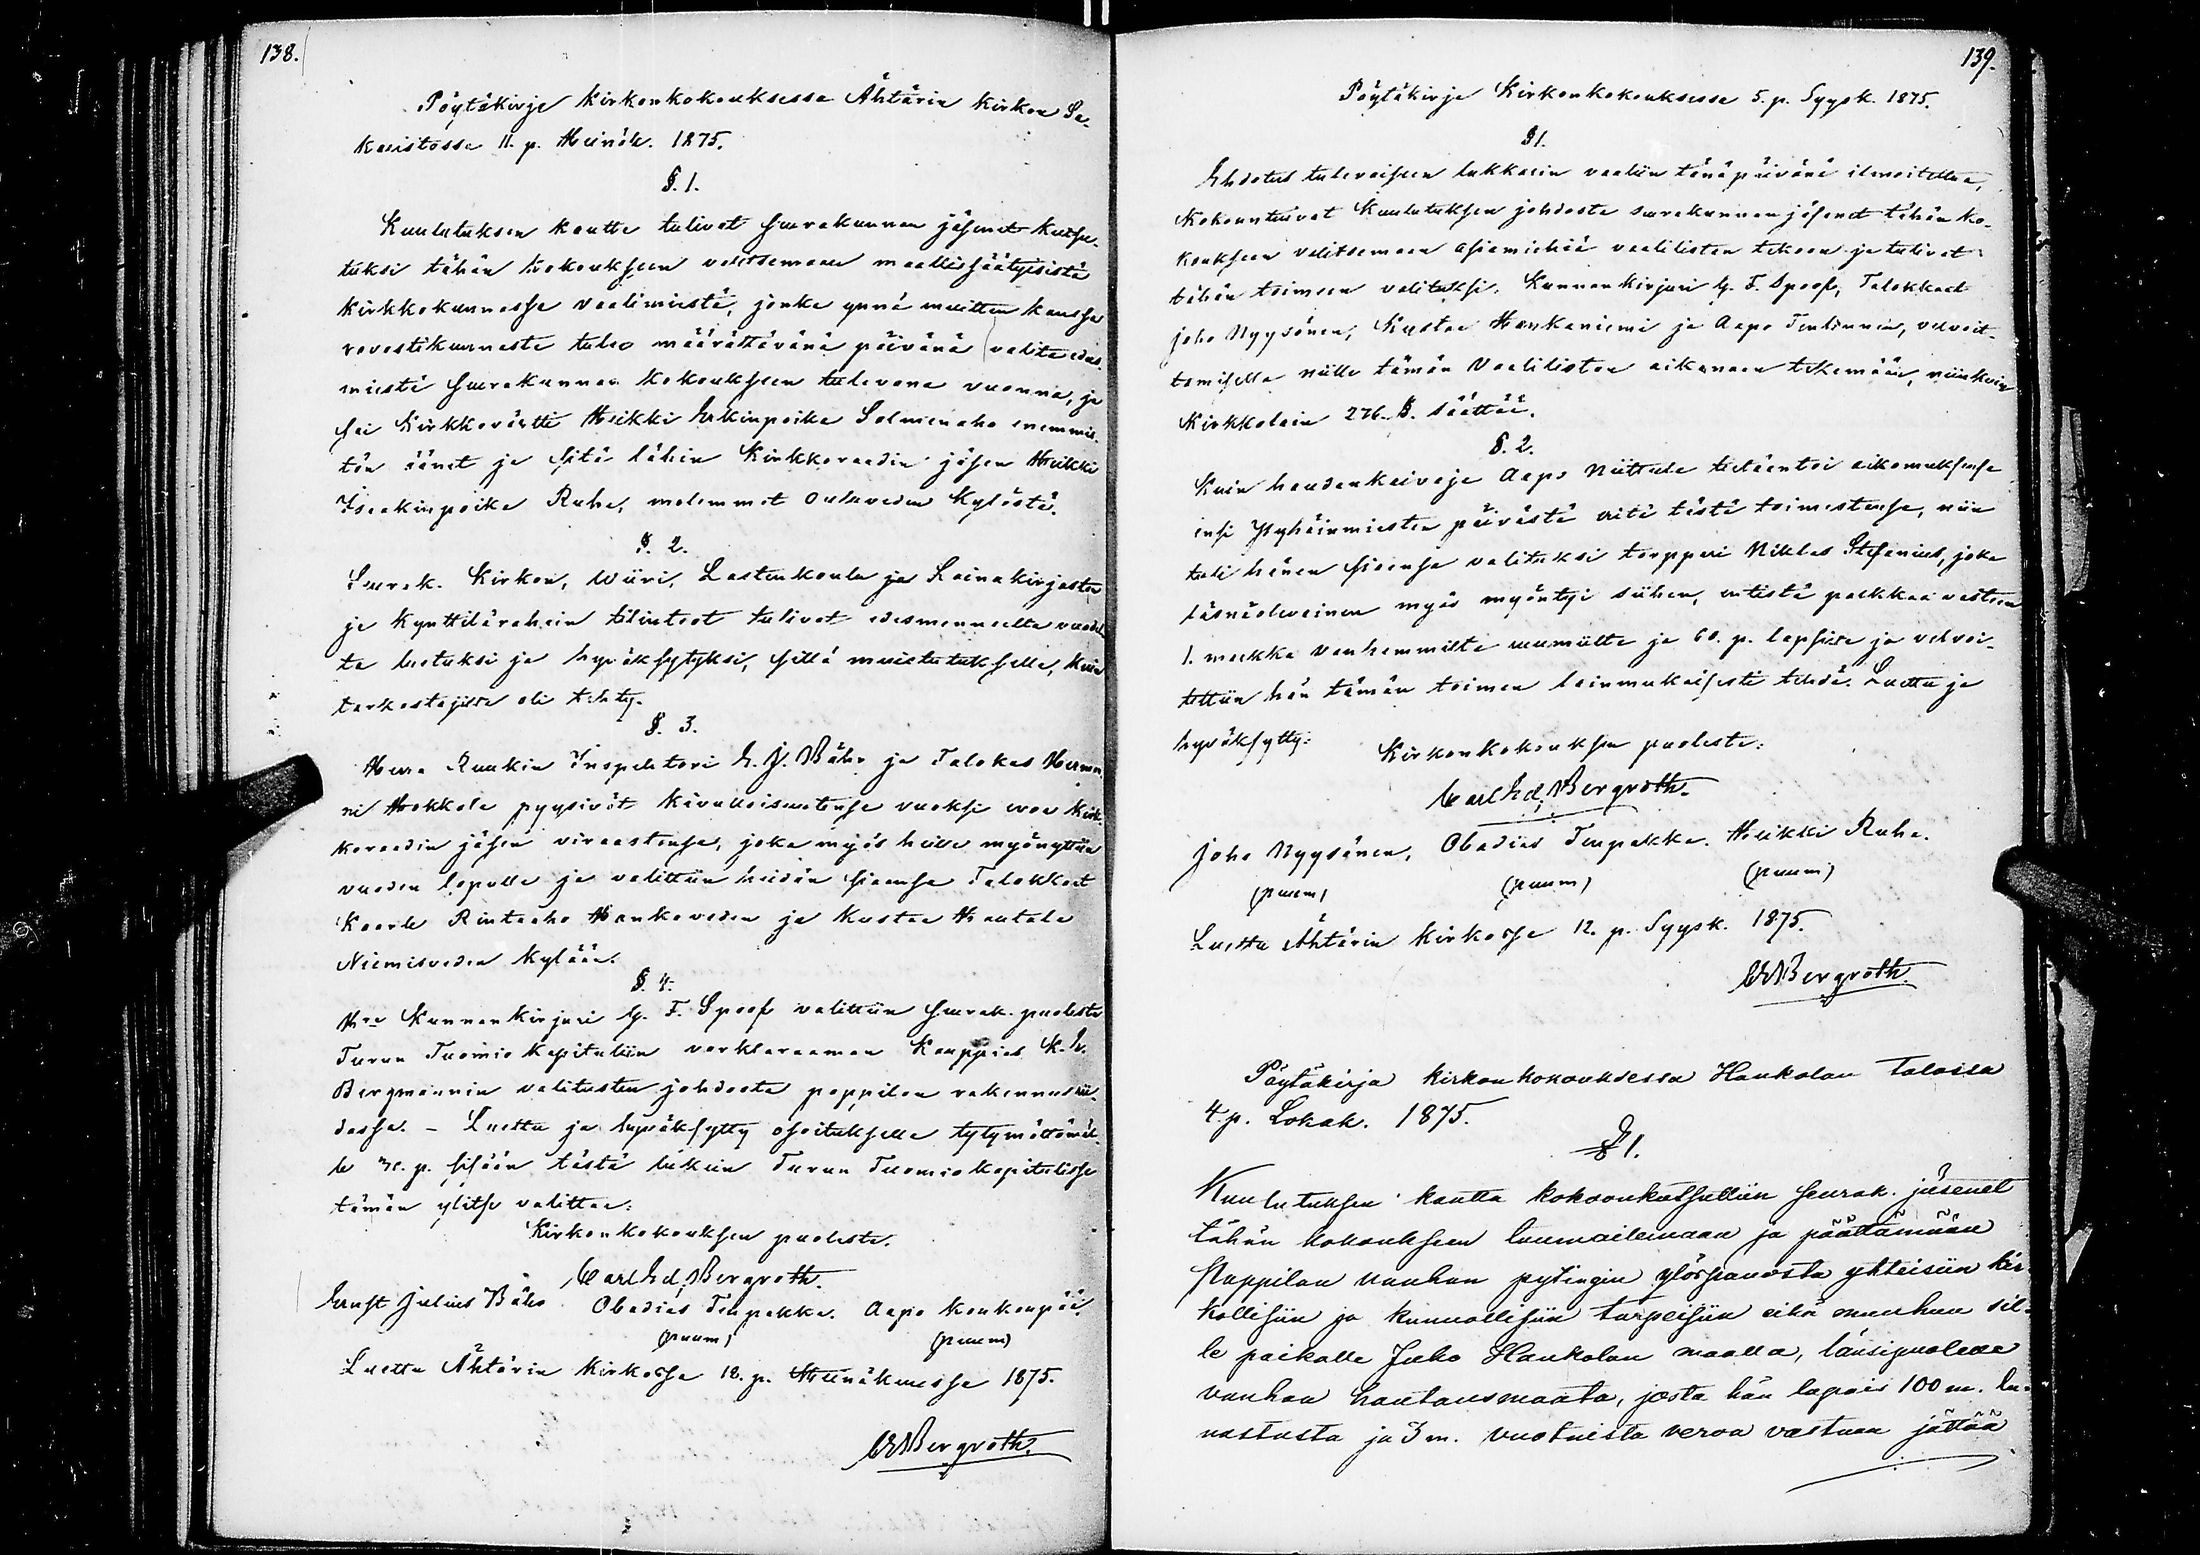 138.
Pöytäkirja Kirkonkokouksessa Ähtärin Kirkon Sa-
karistossa 11. p. Heinäk. 1875.
§. 1.
Kuulutuksen kautta tulivat seurakunnan jäsenet kutsu-
tuksi tähän kokoukseen valitsemaan maallissäätyisistä
kirkkokunnassa vaalimiestä, jonka ynnä muitten kanssa
rovastikunnasta tulee määrättävänä päivänä valita edus-
miestä seurakunnan kokoukseen tulevana vuonna, ja
sai Kirkkoväärtti Heikki Erkinpoika Salmenaho enemmis-
tön äänet ja sitä lähin Kirkkoraadin jäsen Heikki
Isaakinpoika Ruha, molemmat Ouluveden Kylästä.
§. 2.
Seurak. Kirkon, Wiiri, Lastenkoulu ja Lainakirjaston
ja Kynttilärahain tilinteot tulivat edesmenneelta vuodel-
ta luetuksi ja hyväksytyksi, sillä muistutuksella, kuin
tarkastajilta oli tehty.
§. 3.
Herra Ruukin Inspehtori E. J. Bähr ja Talokas Herman-
ni Hokkola pyysivät kivulloisuutensa vuoksi eroa Kirk-
koraadin jäsen viraastansa, joka myös heille myönnettiin
vuoden lopulle ja valittiin heidän siaansa Talokkaat
Kaarle Rintaaho Hankaveden ja Kustaa Hautala
Niemisveden Kylään.
§. 4.
Hra Kunnankirjuri G. F. Spoof valittiin seurak. puolesta
Turun Tuomio Kapituliin verklaraaman Kauppias K. E.
Bergmannin valitusten johdosta pappilan rakennusrii-
dassa. - Luettu ja hyväksytty osoituksella tytymättömäl-
le 30. p. sisään tästä lukein Turun Tuomiokapitulissa
tämän ylitse valittaa:
Kirkonkokouksen puolesta.
Carl Ed. Bergroth.
Ernst Julius Bähr Obadias Tuupakka. Aapo Koukonpää
(puum) (puum)
Luettu Ähtärin Kirkossa 18. p. Heinäkuussa 1875.
CEBergroth.
139.
Pöytäkirja Kirkonkokouksessa 5. p. Syysk. 1875.
§1.
Ehdotus tulevaiseen lukkarin vaaliin tänäpäivänä ilmoitettua,
Kokoontuivat Kuulutuksen johdosta seurakunnan jäsenet tähän ko-
koukseen valitsemaan asiamiehiä vaalilistan tekoon ja tulivat
tähän toimeen valituksi. Kunnankirjuri G. F. Spoof, Talokkaat
Joho Nyysönen, Kustaa Hankaniemi ja Aapo Tuulinmin, velvoit-
tamisella niille tämän Vaalilistan aikanaan tekemään, niinkuin
Kirkkolain 276. §. säättää.
§. 2.
Kuin haudankaivaja Aapo Niittula tiläentoi aikomuksensa
ensi Pyhäinmiesten päivästä eritä tästä toimestansa, niin
tuli hänen siaansa valituksi torppari Niklas Stefanius, joka
läsnäolevainen myös myöntyi siihen, entistä palkkaa vastaan
1. markka vanhemmilta ruumiilta ja 60. p. lapsilta ja velvoi-
tettiin hän tämän toimen lainmukaisesti tehdä. Luettu ja
hyväksytty:
Kirkonkokouksen puolesta:
Carl Ed. Bergroth.
Joho Nyysönen. Obadias Tuupakka. Heikki Ruha.
(puum) (puum) (puum)
Luettu Ähtärin kirkossa 12. p. Syysk. 1875.
CEBergroth.
Pöytäkirja kirkonkokouksessa Haukolan talossa
4. p. Lokak. 1875.
§ 1.
Kuulutuksen kautta kokoonkutsuttiin seurak. jäsenet
tähän kokoukseen tuumailemaan ja päättämään
Pappilan vanhan pytingin ylöspanosta yhteisiin kir-
kollisiin ja kunnallisiin tarpeisiin eikä muuhun sil-
le paikalle Juho Haukolan maalla, länsipuolelle
vanhaa hautausmaata, josta hän lupais 100 m. lu-
nastusta ja 3 m. vuotuista veroa vastaan jättää